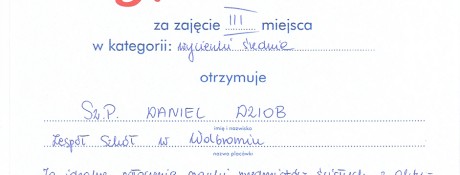 za zajęcie III miejsca
w kategorii: wycinanki średnie
otrzymuje
Sz.P. DANIEL DZIOB
imię i nazwisko
Zespół Szkół w Wolbromiu
nazwa placówki